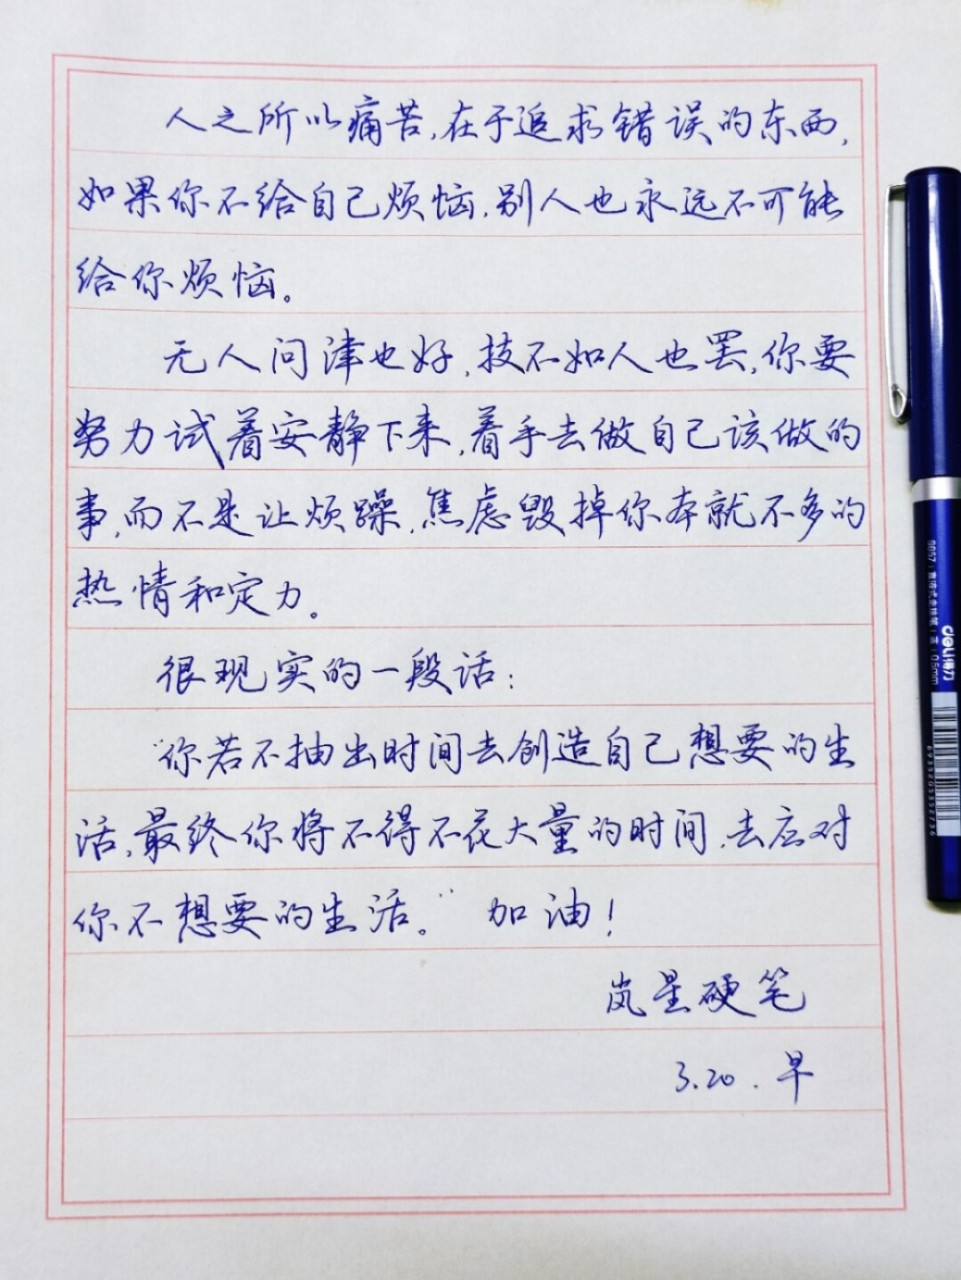 人之所以痛苦,在于追求错误的东西,
如果你不给自己烦恼,别人也永远不可能
给你烦恼。
无人问津也好,技不如人也罢,你要
努力试着安静下来,着手去做自己该做的
事,而不是让烦躁,焦虑毁掉你本就不多的
热情和定力。
很现实的一段话:
“你若不抽出时间去创造自己想要的生
活,最终你将不得不花大量的时间,去应对
你不想要的生活。” 加油!
岚星硬笔
3.20.早
deli得力